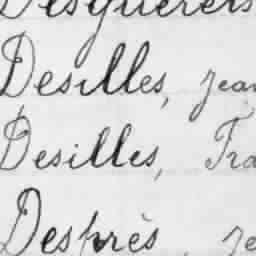 Desquerers
Desilles, Jean
Desilles, Fra
Després, Je